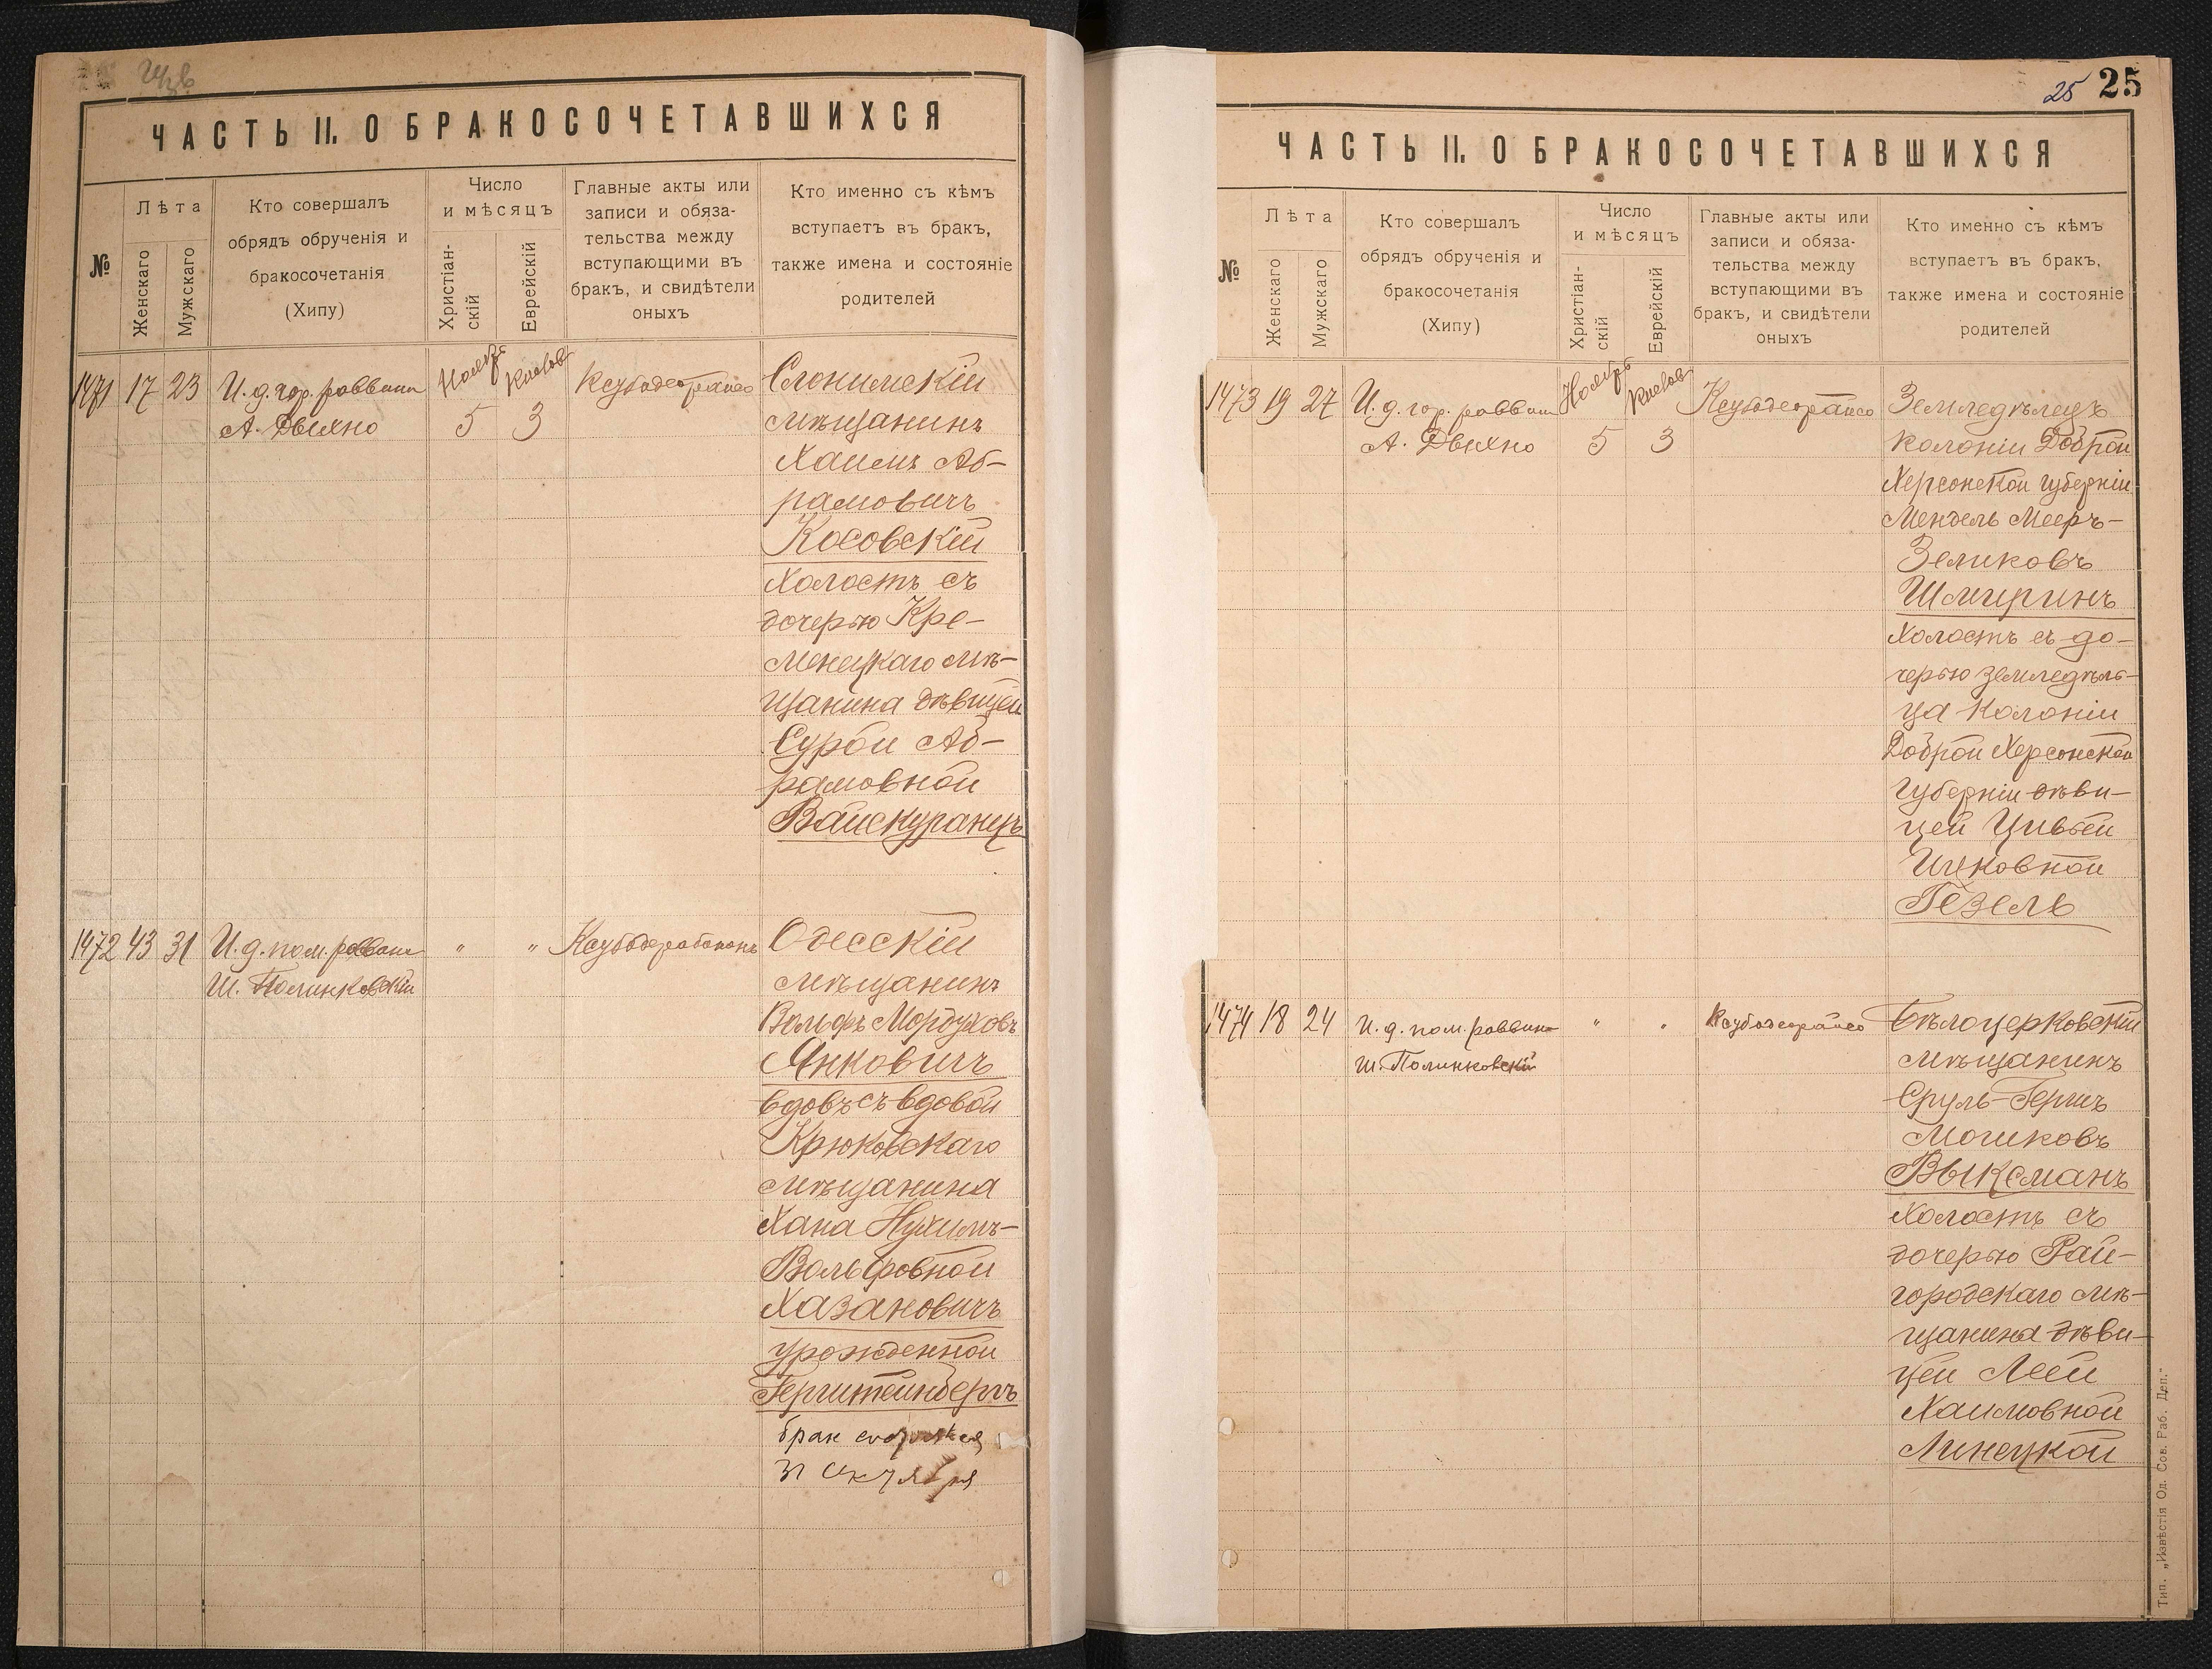 ЧАСТЬ II. О БРАКОСОЧЕТАВШИХСЯ
№
Лѣта
Женскаго
Мужскаго
Кто совершалъ
обрядъ обрученія и
бракосочетанія
(Хипу)
Число
и мѣсяцъ
Христіан-
скій
Еврейскій
Главные акты или
записи и обяза-
тельства между
вступающими въ
бракъ, и свидѣтели
оныхъ
Кто именно съ кѣмъ
вступаетъ въ бракъ,
также имена и состояніе
родителей
1471 17 23
И. д. гор. раввина
А. Двихно
Ноябр
5
Кислов
3
Слонимскій
мѣщанинъ
Хаимъ Аб-
рамовичъ
Косовскій
холостъ съ
дочерью Кре-
менецкаго мѣ-
щанина дѣвицей
Сурой Аб-
рамовной
Вайскуранцъ
1472 43 31
И. д. пом. раввина
Ш. Полинковскій
"
"
Одесскій
мѣщанинъ
Вольфъ Мордуховъ
Янковичъ
вдовъ съ вдовой
Крюковскаго
мѣщанина
Хана Нухимъ-
Вольфовной
Хазановичъ
урожденной
Герштейнбергъ
брак
31
ЧАСТЬ II. О БРАКОСОЧЕТАВШИХСЯ
25 25
№
Лѣта
Женскаго
Мужскаго
Кто совершалъ
обрядъ обрученія и
бракосочетанія
(Хипу)
Число
и мѣсяцъ
Христіан-
скій
Еврейскій
Главные акты или
записи и обяза-
тельства между
вступающими въ
бракъ, и свидѣтели
оныхъ
Кто именно съ кѣмъ
вступаетъ въ бракъ,
также имена и состояніе
родителей
1473 19 27
И. д. гор. раввина
А. Двихно
Ноябръ
5
Кислов
3
Земледѣлецъ
колоніи Доброй
Херсонской губерніи
Мендель Мееръ-
Зеликовъ
Шмиринъ
холостъ съ до-
черью земледѣль-
ца колоніи
Доброй Херсонской
губерніи дѣви-
цей Цивьей
Ицковной
Гезель
1474 18 24
И. д. пом. раввина
Ш. Полинковскій
"
"
Бѣлоцерковскій
мѣщанинъ
Сруль-Гершъ
Мошковъ
Выксманъ
холостъ съ
дочерью Рай-
городскаго мѣ-
щанина дѣви-
цей Леей
Хаимовной
Линецкой
Тип. „Извѣстія Од. Сов. Раб. Деп."